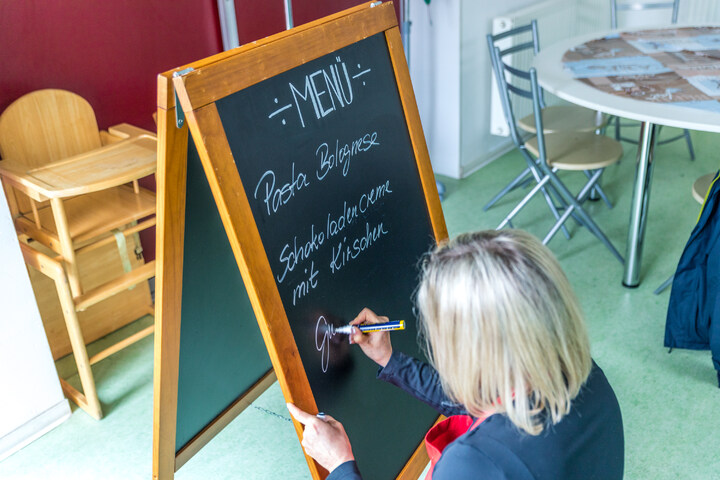 ÷ MENÜ ÷
Pasta Bolognese
Schokoladencreme
mit Kirschen
Gu